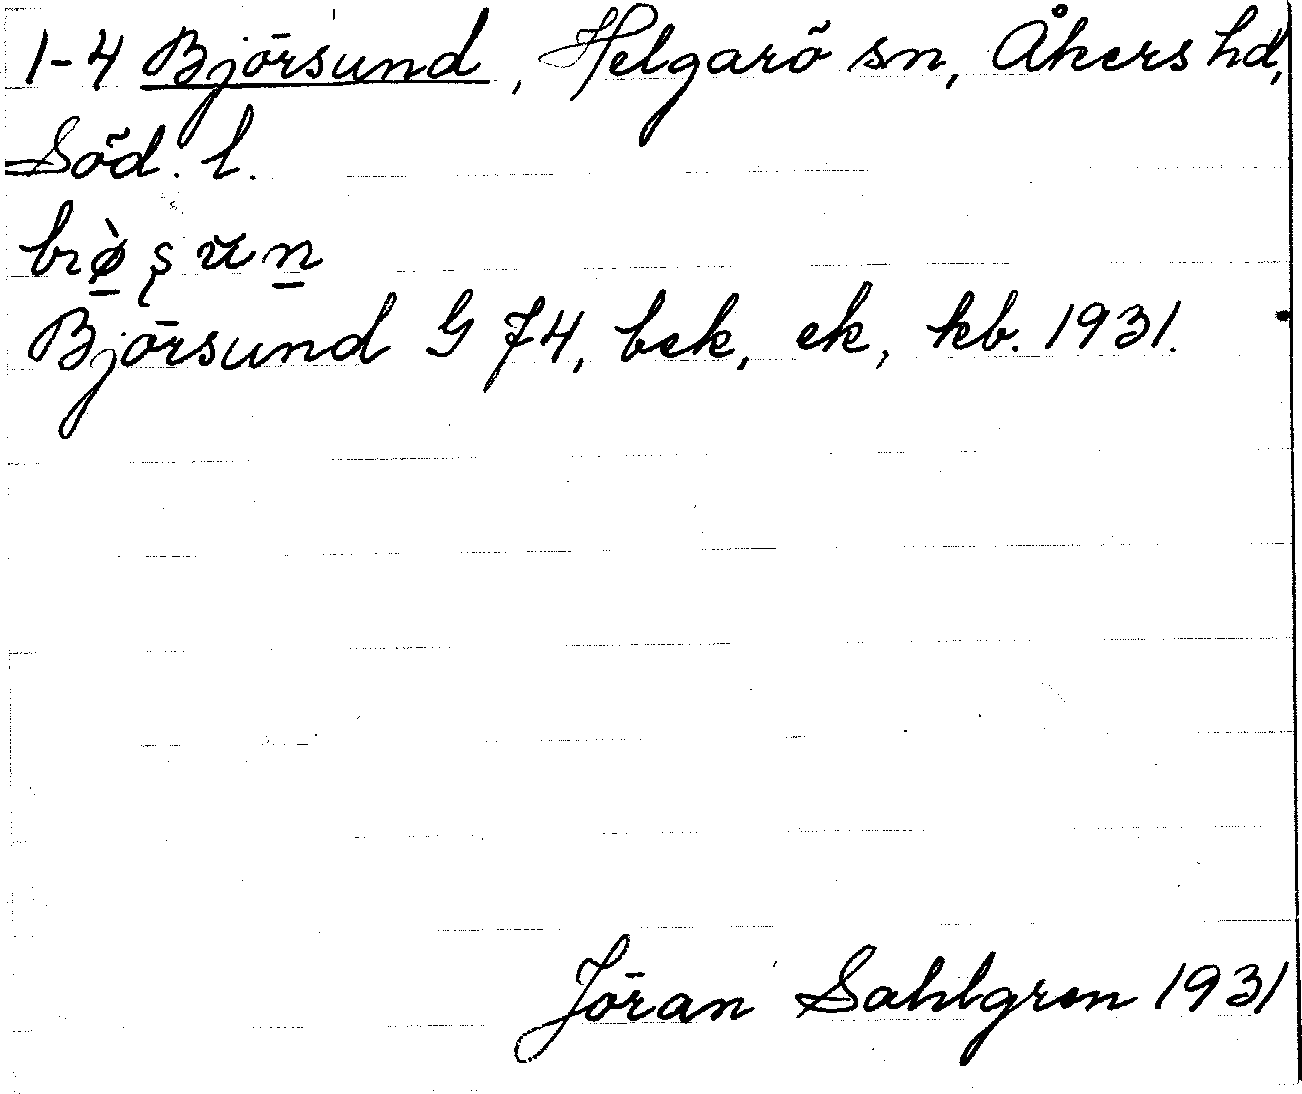 1-4 Björsund, Helgarö sn, Åkers hd,
Söd. l.
Björsund G 74, bek, ek, kb. 1931.
Jöran Sahlgren 1931